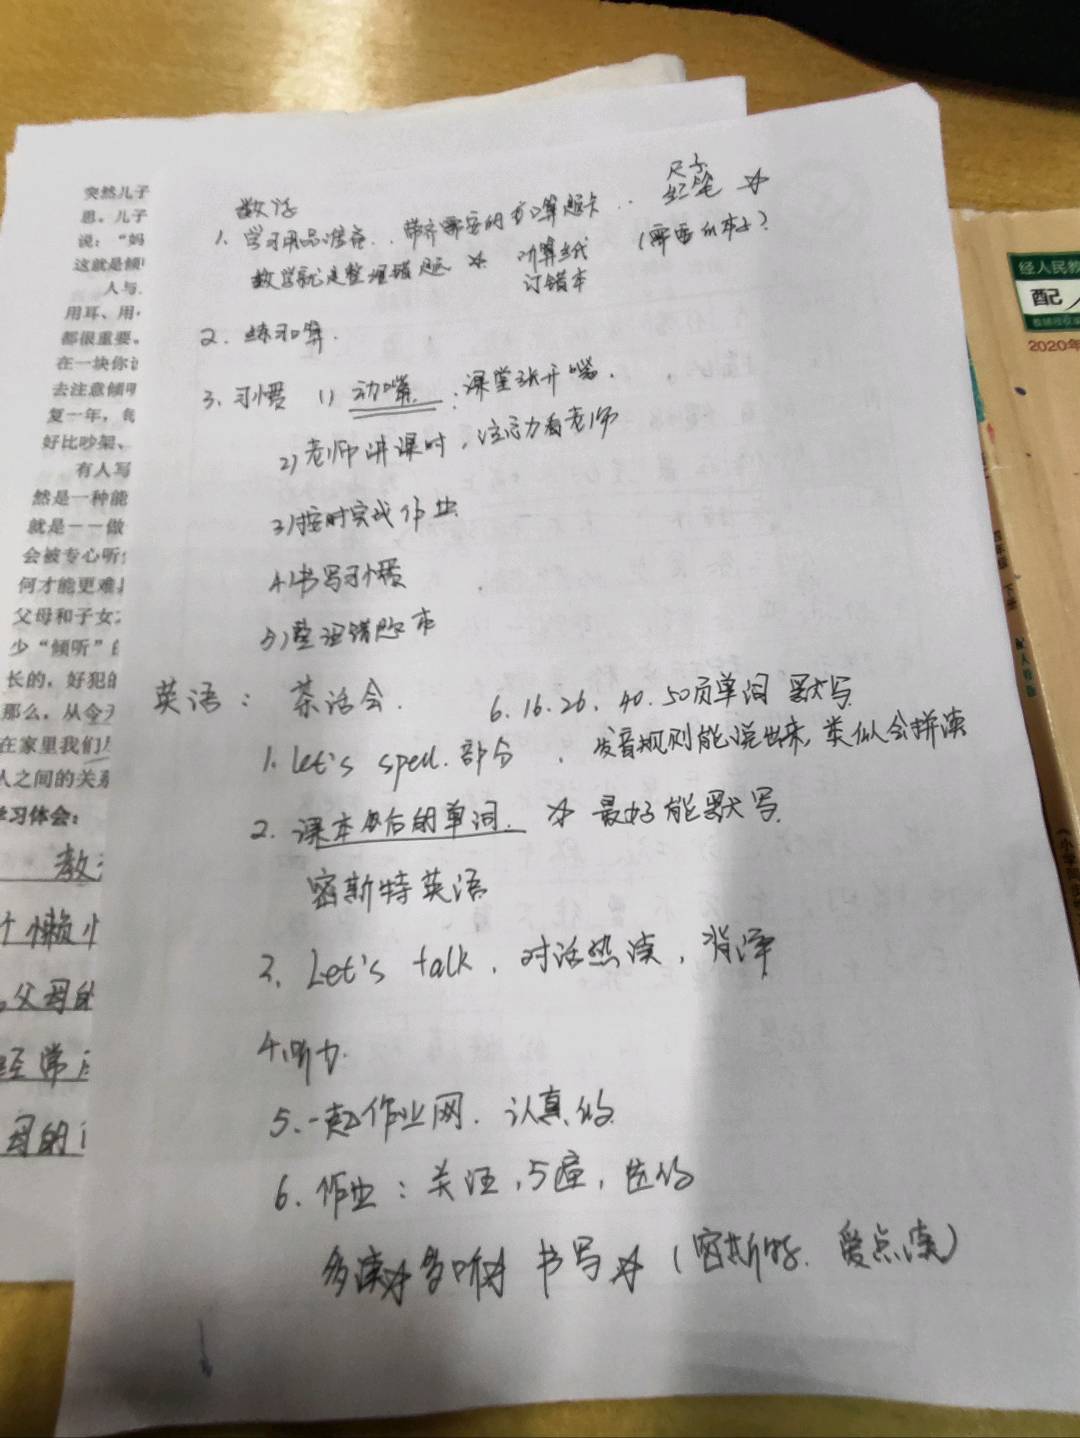 突然儿子
思。儿子
说：“妈
这就是倾
人与
用耳、用
都很重要。
在一块你
去注意倾
复一年，
好比吵架、
有人写
然是一种能
就是——做
会被专心听
何才能更难
父母和子女
少“倾听”
长的，好犯的
那么，从今
在家里我们
人之间的关系
学习体会：
教
懒
父母的
经常
母的
尺子
红笔 ☆
1. 学习用品准备.. 带齐需要的 口算题卡..
数学就是整理错题 ☆ 演算纸 (需要 本子?
订错本
2. 练习口算.
3. 习惯 1) 动嘴：课堂张开嘴.
2) 老师讲课时，注意力看老师
3) 按时完成作业
4) 书写习惯
5) 整理错题本
英语： 茶话会. 6. 16. 26. 40. 50页单词 默写
1. Let's spell. 部分 ，发音规则能说出来，类似会拼读
2. 课本 后的单词. ☆ 最好能默写
密斯特英语
3. Let's talk，对话熟读，背译
4. 听力.
5. 一起作业网. 认真做
6. 作业：关注，
多读☆多听☆ 书写☆ (密斯特. 爱点读)
经人民教
配
2020年
下册